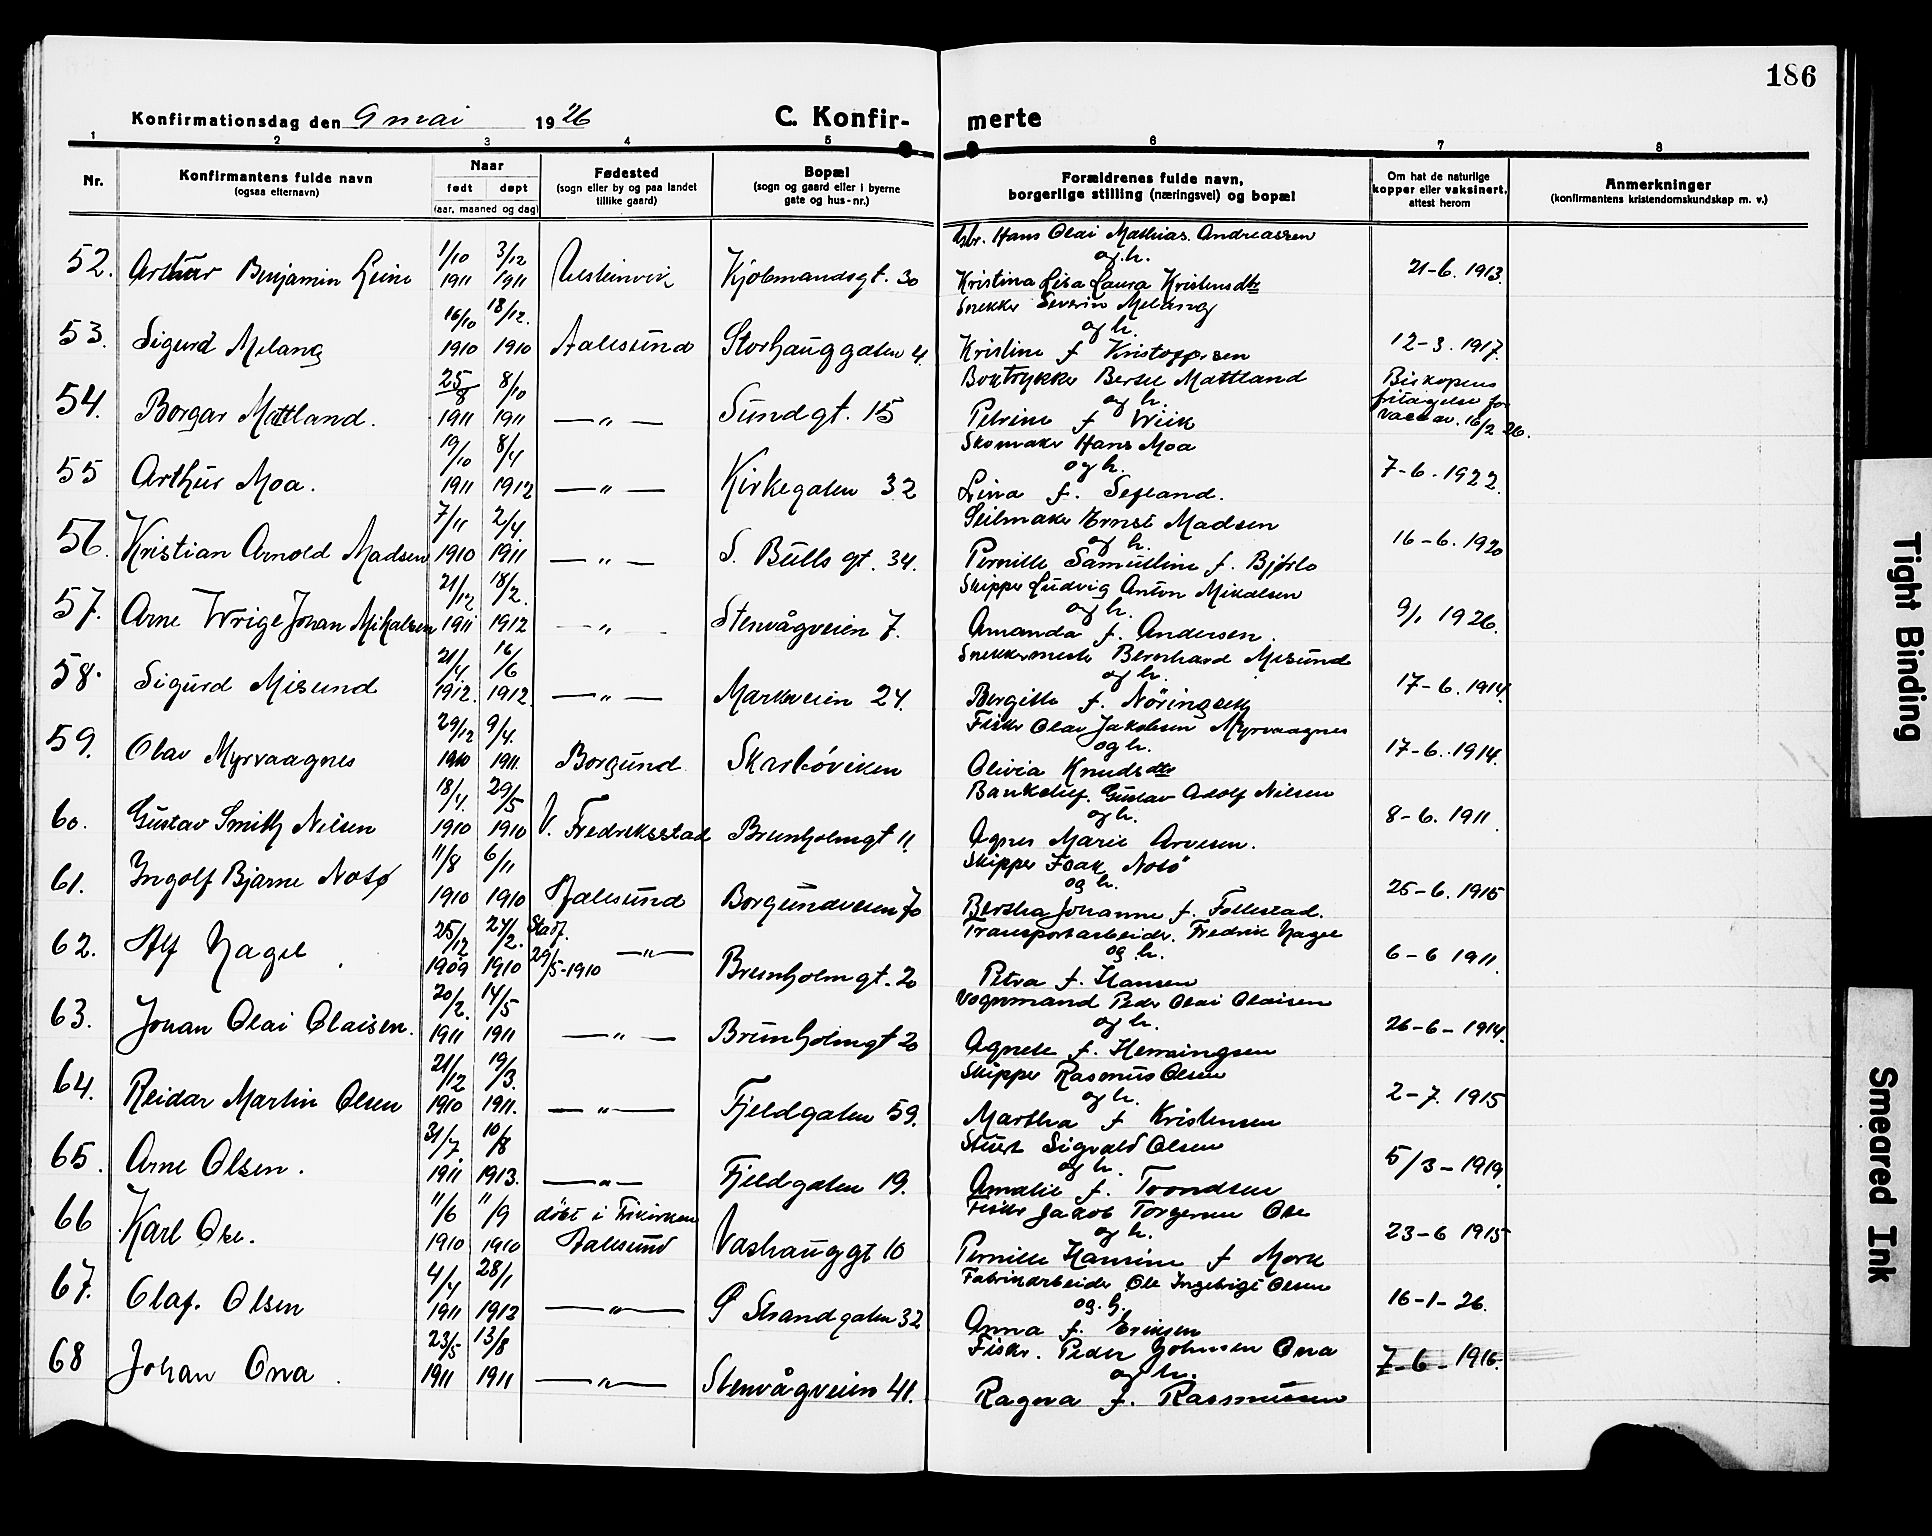 186
Konfirmationsdag den 9 mai 1926
C. Konfir- merte
1 2 3 4 5 6 7 8
Nr.
Konfirmantens fulde navn
(ogsaa elternavn)
Naar
født døpt
(aar, maaned og dag)
Fødested
(sogn eller by og paa landet
tillike gaard)
Bopæl
(sogn og gaard eller i byerne
gate og hus-nr.)
Forældrenes fulde navn,
borgerlige stilling (næringsvei) og bopæl
Om hat de naturlige
kopper eller vaksinert,
attest herom
Anmerkninger
(konfirmantens kristendomskundskap m. v.)
Hans Olai Mathias Andreassen
52. Arthur Benjamin Leine 1/10 1911 3/12 1911 Ulsteinvik Kjøbmandsgt. 30 og h. 21-6. 1913.
Kristina Lisa Laura Kristensdtr
Snekker Severin Melang
53. Sigurd Melang 16/10 1910 18/12. 1910 Aalesund Storhauggaten 4. og h. 12-3. 1917.
Kristine f Kristoffersen
Boktrykker Bertel Mattland
54. Borgar Mattland. 25/8 1911 8/10 1911 —"— Sundgt. 15 og h. Biskopens fritagelse for vaccin. 16/2 26.
Petrine f Wiik
Skomaker Hans Moa
55 Arthur Moa. 19/10 1911 8/4 1912 —"— Kirkegaten 32 og h. 7-6. 1922.
Lina f. Sefland.
Seilmaker Ernst Madsen
56. Kristian Arnold Madsen 7/11 1910 2/4. 1911 —"— S. Bulls gt. 34. og h. 16-6. 1920
Pernille Samueline f. Bjørlo
Skipper Ludvig Anton Mikalsen
57. Arne Wrige Johan Mikalsen 21/12 1911 18/2. 1912 —"— Stenvågveien 7. og h. 9/1 1926.
Amanda f. Andersen.
Snekkermester Bernhard Misund
58. Sigurd Misund 21/4 1912. 16/6 1912. —"— Markveien 24. og h. 17-6. 1914.
Bergitte f. Nöringseth
Fisker Olav Jakobsen Myrvaagnes
59. Olav Myrvaagnes 29/12 1910 9/4. 1911. Borgund Skarbøviken og h. 17-6. 1914.
Olivia Knudsdtr
Bankchef. Gustav Adolf Nilsen
60. Gustav Smith Nilsen 18/4. 1910 29/5 1910 V. Fredriksstad Brunholmgt 11. og h. 8-6. 1911
Agnes Marie Arvesen.
Skipper Isak Notö
61. Ingolf Bjarne Notø 11/8 1910 6/11 1910 Aalesund Borgundveien 70 og h. 25-6. 1915
Bertha Johanne f. Follestad.
Transportarbeider. Fredrik Nagel
62. Alf Nagel 25/12 1909 27/2. 1910 Stadf. 29/5-1910 —"— Brunholmgt. 20 og h. 6-6 1911
Petra f. Hansen
Vognmand Peder Olai Olaisen
63. Johan Olai Olaisen. 20/2. 1911 14/5 1911 —"— Brunholmgt 20 og h. 26-6-1914.
Agnete f. Henningsen
Skipper Rasmus Olsen
64. Reidar Martin Olsen 21/12 1910 19/3. 1911. —"— Fjeldgaten 59. og h. 2-7. 1915
Martha f Kristensen
Stuert Sigvald Olsen
65. Arne Olsen. 31/7. 1911 10/8 1913. —"— Fjeldgaten 19. og h. 5/3-1919.
Amalie f. Trondsen
Fisker Jakob Torgersen Ose
66 Karl Ose. 11/6 1910 11/9 1910 døbt i Frikirken Aalesund Vashauggt 10 og h. 23-6 1915
Pernille Hansine f Mork
Fabrikarbeider Ole Ingebrigt Olsen
67. Olaf. Olsen 4/4 1911 28/1 1912 —"— Ø Strandgaten 32 og. h. 16-1-26.
Anna f. Eriksen
Fisker. Peder Johnsen Ona
68 Johan Ona. 23/5 1911 13/8 1911 —"— Stenvågveien 41. og h. 7-6-1916.
Ragna f. Rasmussen
Tight Binding
Smeared Ink